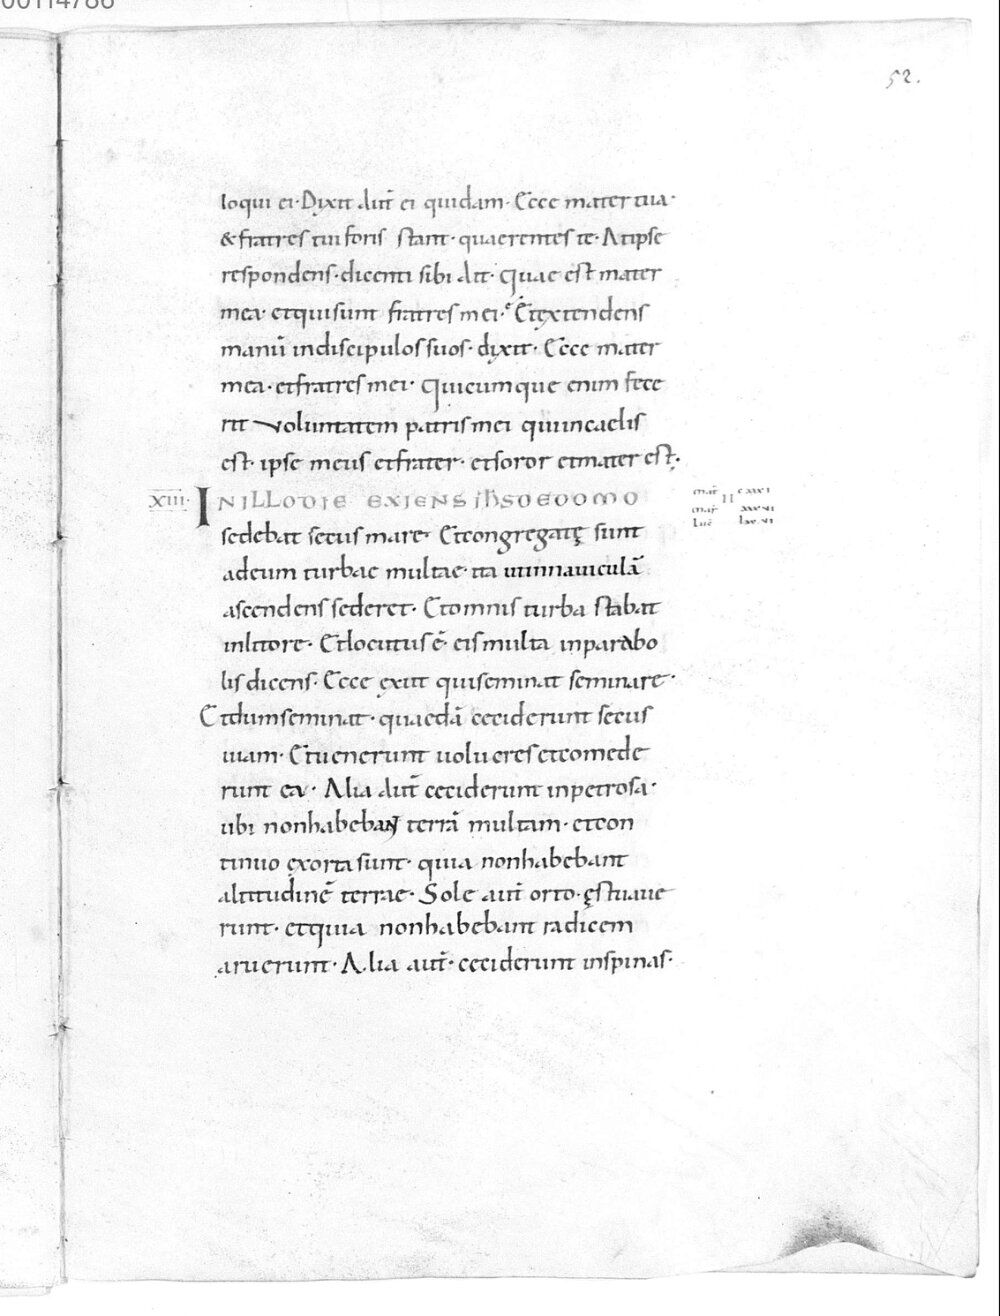 00114786
52.
loqui ei· Dixit aut̄ ei quidam· Ecce mater tua·
& fratres tui foris stant· quaerentes te· At ipse
respondens· dicenti sibi ait· Quae est mater
mea· et qui sunt fratres mei· Et extendens
manū in discipulos suos· dixit· Ecce mater
mea· et fratres mei· Quicumque enim fece
rit voluntatem patris mei qui in caelis
est· ipse meus et frater· et soror et mater est;
XIII· IN ILLO DIE EXIENS IH̄S DE DOMO
sedebat secus mare· Et congregatę sunt
ad eum turbae multae· ita ut in nauiculā
ascendens sederet· Et omnis turba stabat
in litore· Et locutus ē eis multa in parabo
lis dicens· Ecce exiit qui seminat seminare·
Et dum seminat· quaedā ceciderunt secus
uiam· Et uenerunt uolucres et comede
runt ea· Alia aut̄ ceciderunt in petrosa·
ubi non habebant terrā multam· et con
tinuo exorta sunt· quia non habebant
altitudinē terrae· Sole aut̄ orto· ęstuaue
runt· et quia non habebant radicem
aruerunt· Alia aut̄· ceciderunt in spinas·